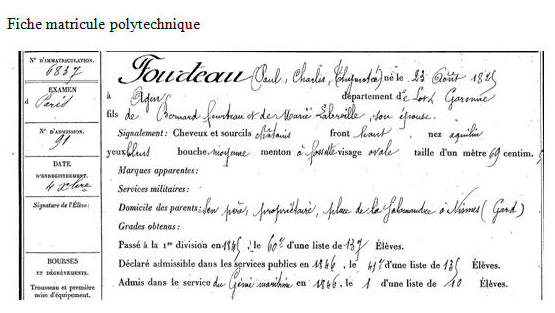 Fiche matricule polytechnique
N° D'IMMATRICULATION.
6837
EXAMEN
à Paris
N° D'ADMISSION.
91
DATE
D'ENREGISTREMENT.
4 xbre
Signature de l'Élève:
BOURSES
ET DÉGRÈVEMENTS.
Trousseau et première
mise d'équipement.
Fourdeau (Paul, Charles, ) né le 23 Août 1825
à Agen département de Lot & Garonne
fils de Bernard Fourdeau et de Marie Laterville, son épouse.
Signalement: Cheveux et sourcils châtains front haut nez aquilin
yeux bleus bouche moyenne menton à fossette visage ovale taille d'un mètre 69 centim.
Marques apparentes:
Services militaires:
Domicile des parents: Son père, propriétaire, place de la Salamandre à Nismes (Gard)
Grades obtenus:
Passé à la 1re division en 1845, le 60e d'une liste de 137 Élèves.
Déclaré admissible dans les services publics en 1846, le 41e d'une liste de 135 Élèves.
Admis dans le service du Génie maritime en 1846, le 1 d'une liste de 10 Élèves.